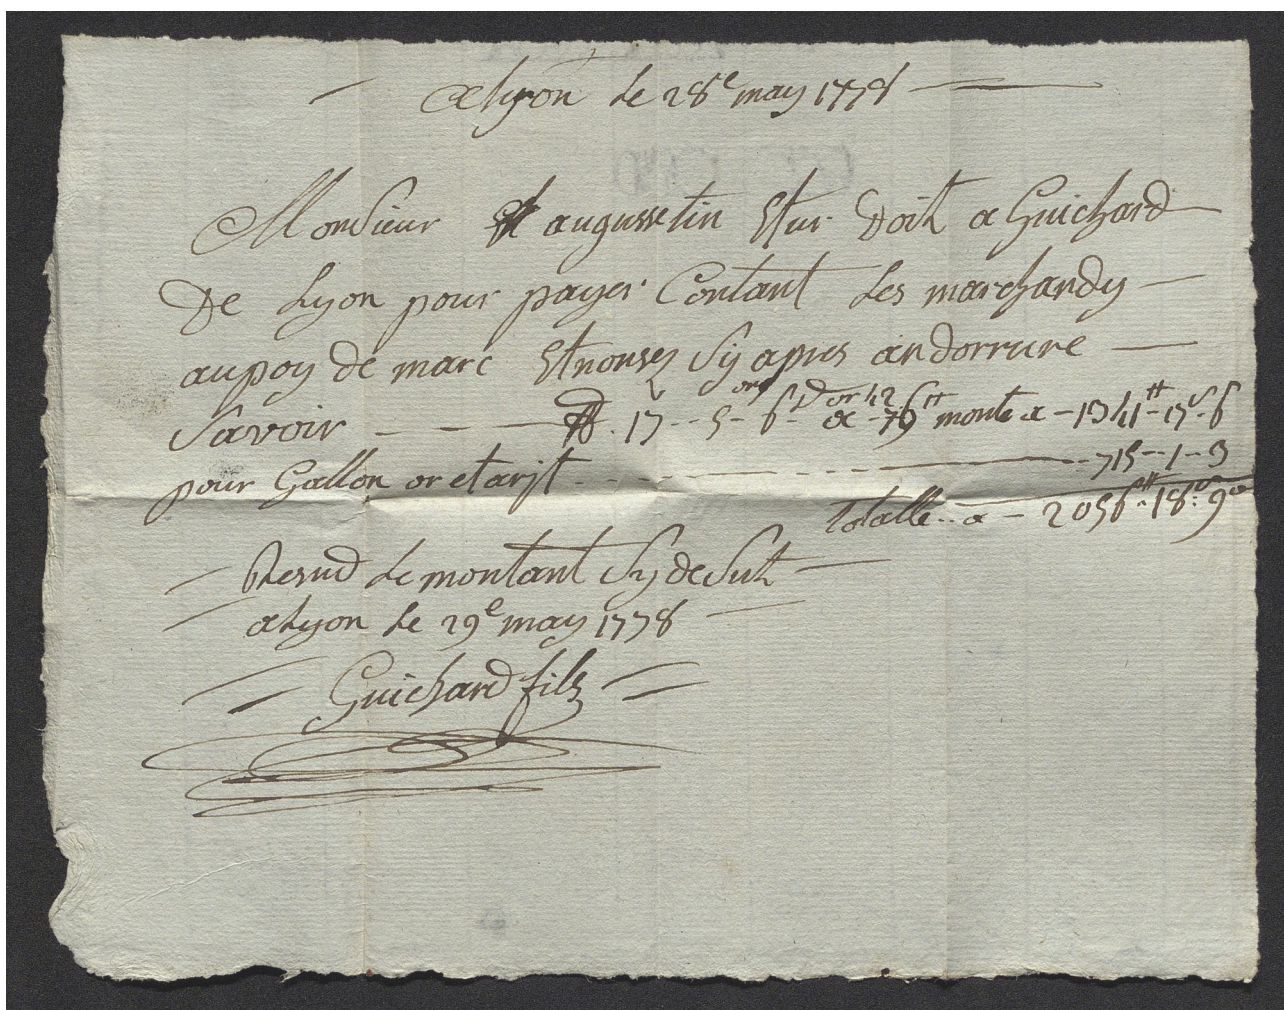 a lyon le 28e may 1778
Monsieur augussetin Stur Doit a Guichard
De Lyon pour payer Contant Les marchandy
au poy de marc Et nonsez Sy apres an dorrure
Savoir 17 - 5 - 6 - D'or 42 a - 76 tt monte a - 1341 tt - 17 s - 6
pour Gallon or et arjt - 715 - 1 - 3
totalle a - 2056 tt 18 s 9 d
Resud Le montant Sy de Sut
a Lyon Le 29e may 1778
Guichard fils